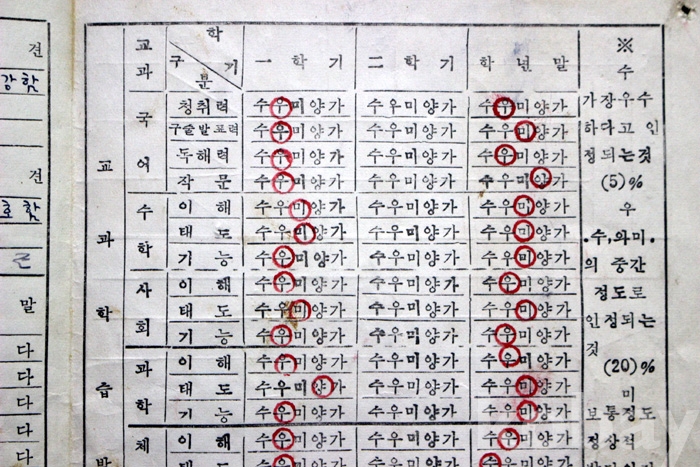 견
견
말
다
다
다
다
다
교과 학 구 기 분 一 학 기 二 학 기 학 년 말
국어 청취력 수우미양가 수우미양가 수우미양가
구술발표력 수우미양가 수우미양가 수우미양가
독해력 수우미양가 수우미양가 수우미양가
작문 수우미양가 수우미양가 수우미양가
수학 이해 수우미양가 수우미양가 수우미양가
태도 수우미양가 수우미양가 수우미양가
기능 수우미양가 수우미양가 수우미양가
사회 이해 수우미양가 수우미양가 수우미양가
태도 수우미양가 수우미양가 수우미양가
기능 수우미양가 수우미양가 수우미양가
과학 이해 수우미양가 수우미양가 수우미양가
태도 수우미양가 수우미양가 수우미양가
기능 수우미양가 수우미양가 수우미양가
체 이해 수우미양가 수우미양가 수우미양가
태도 수우미양가 수우미양가 수우미양가
교
과
학
습
발
※
수
가장우수
하다고 인
정되는것
(5)%
우
수,와미
의 중간
정도로
인정되는
것
(20)%
미
보통정도
정상적